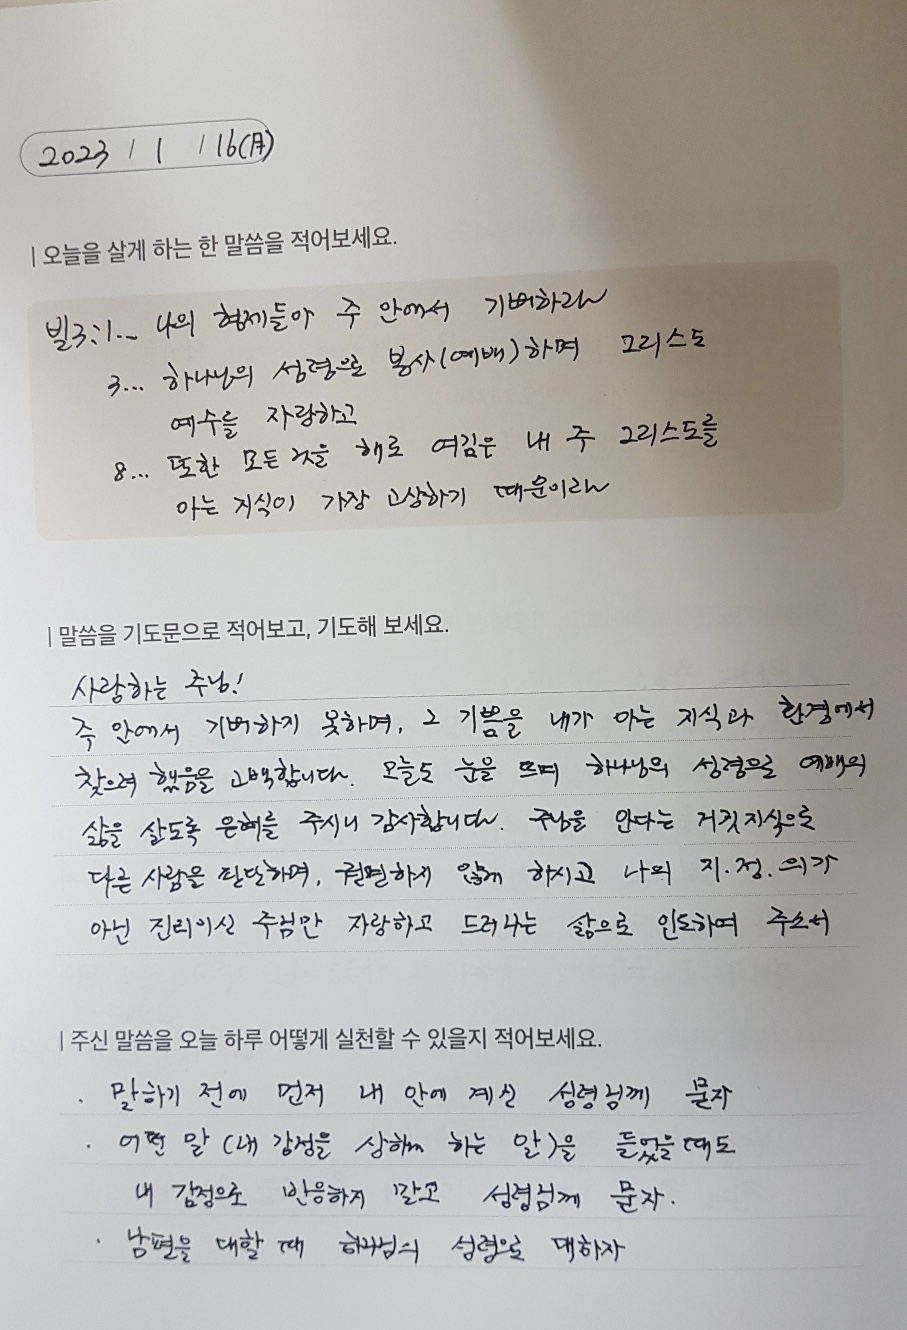 2023 / 1 / 16(月)
| 오늘을 살게 하는 한 말씀을 적어보세요.
빌3:1... 나의 형제들아 주 안에서 기뻐하라
3... 하나님의 성령으로 봉사(예배)하며 그리스도
예수를 자랑하고
8... 또한 모든 것을 해로 여김은 내 주 그리스도를
아는 지식이 가장 고상하기 때문이라
| 말씀을 기도문으로 적어보고, 기도해 보세요.
사랑하는 주님!
주 안에서 기뻐하지 못하며, 그 기쁨을 내가 아는 지식과 환경에서
찾으려 했음을 고백합니다. 오늘도 눈을 뜨며 하나님의 성령으로 예배의
삶을 살도록 은혜를 주시니 감사합니다. 주님을 안다는 거짓지식으로
다른 사람을 판단하며, 권면하지 않게 하시고 나의 지.정.의가
아닌 진리이신 주님만 자랑하고 드러나는 삶으로 인도하여 주소서
| 주신 말씀을 오늘 하루 어떻게 실천할 수 있을지 적어보세요.
. 말하기 전에 먼저 내 안에 계신 성령님께 묻자
. 어떤 말(내 감정을 상하게 하는 말)을 들었을때도
내 감정으로 반응하지 말고 성령님께 묻자.
. 남편을 대할 때 하나님의 성령으로 대하자